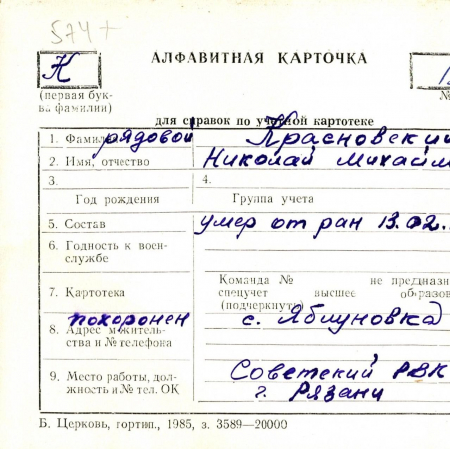 574+
АЛФАВИТНАЯ КАРТОЧКА
К
(первая бук-
ва фамилии)
№
для справок по учетной картотеке
1. Фамилия рядовой Красновский
2. Имя, отчество Николай Михайл
3. 4.
Год рождения Группа учета
5. Состав умер от ран 13.02.
6. Годность к воен-
службе
Команда № не предназн
7. Картотека спецучет высшее образов
(подчеркнуть)
похоронен с. Яблуновка
8. Адрес жительства и № телефона
9. Место работы, дол- Советский РВК
жность и № тел. ОК г. Рязани
Б. Церковь, гортип., 1985, з. 3589—20000